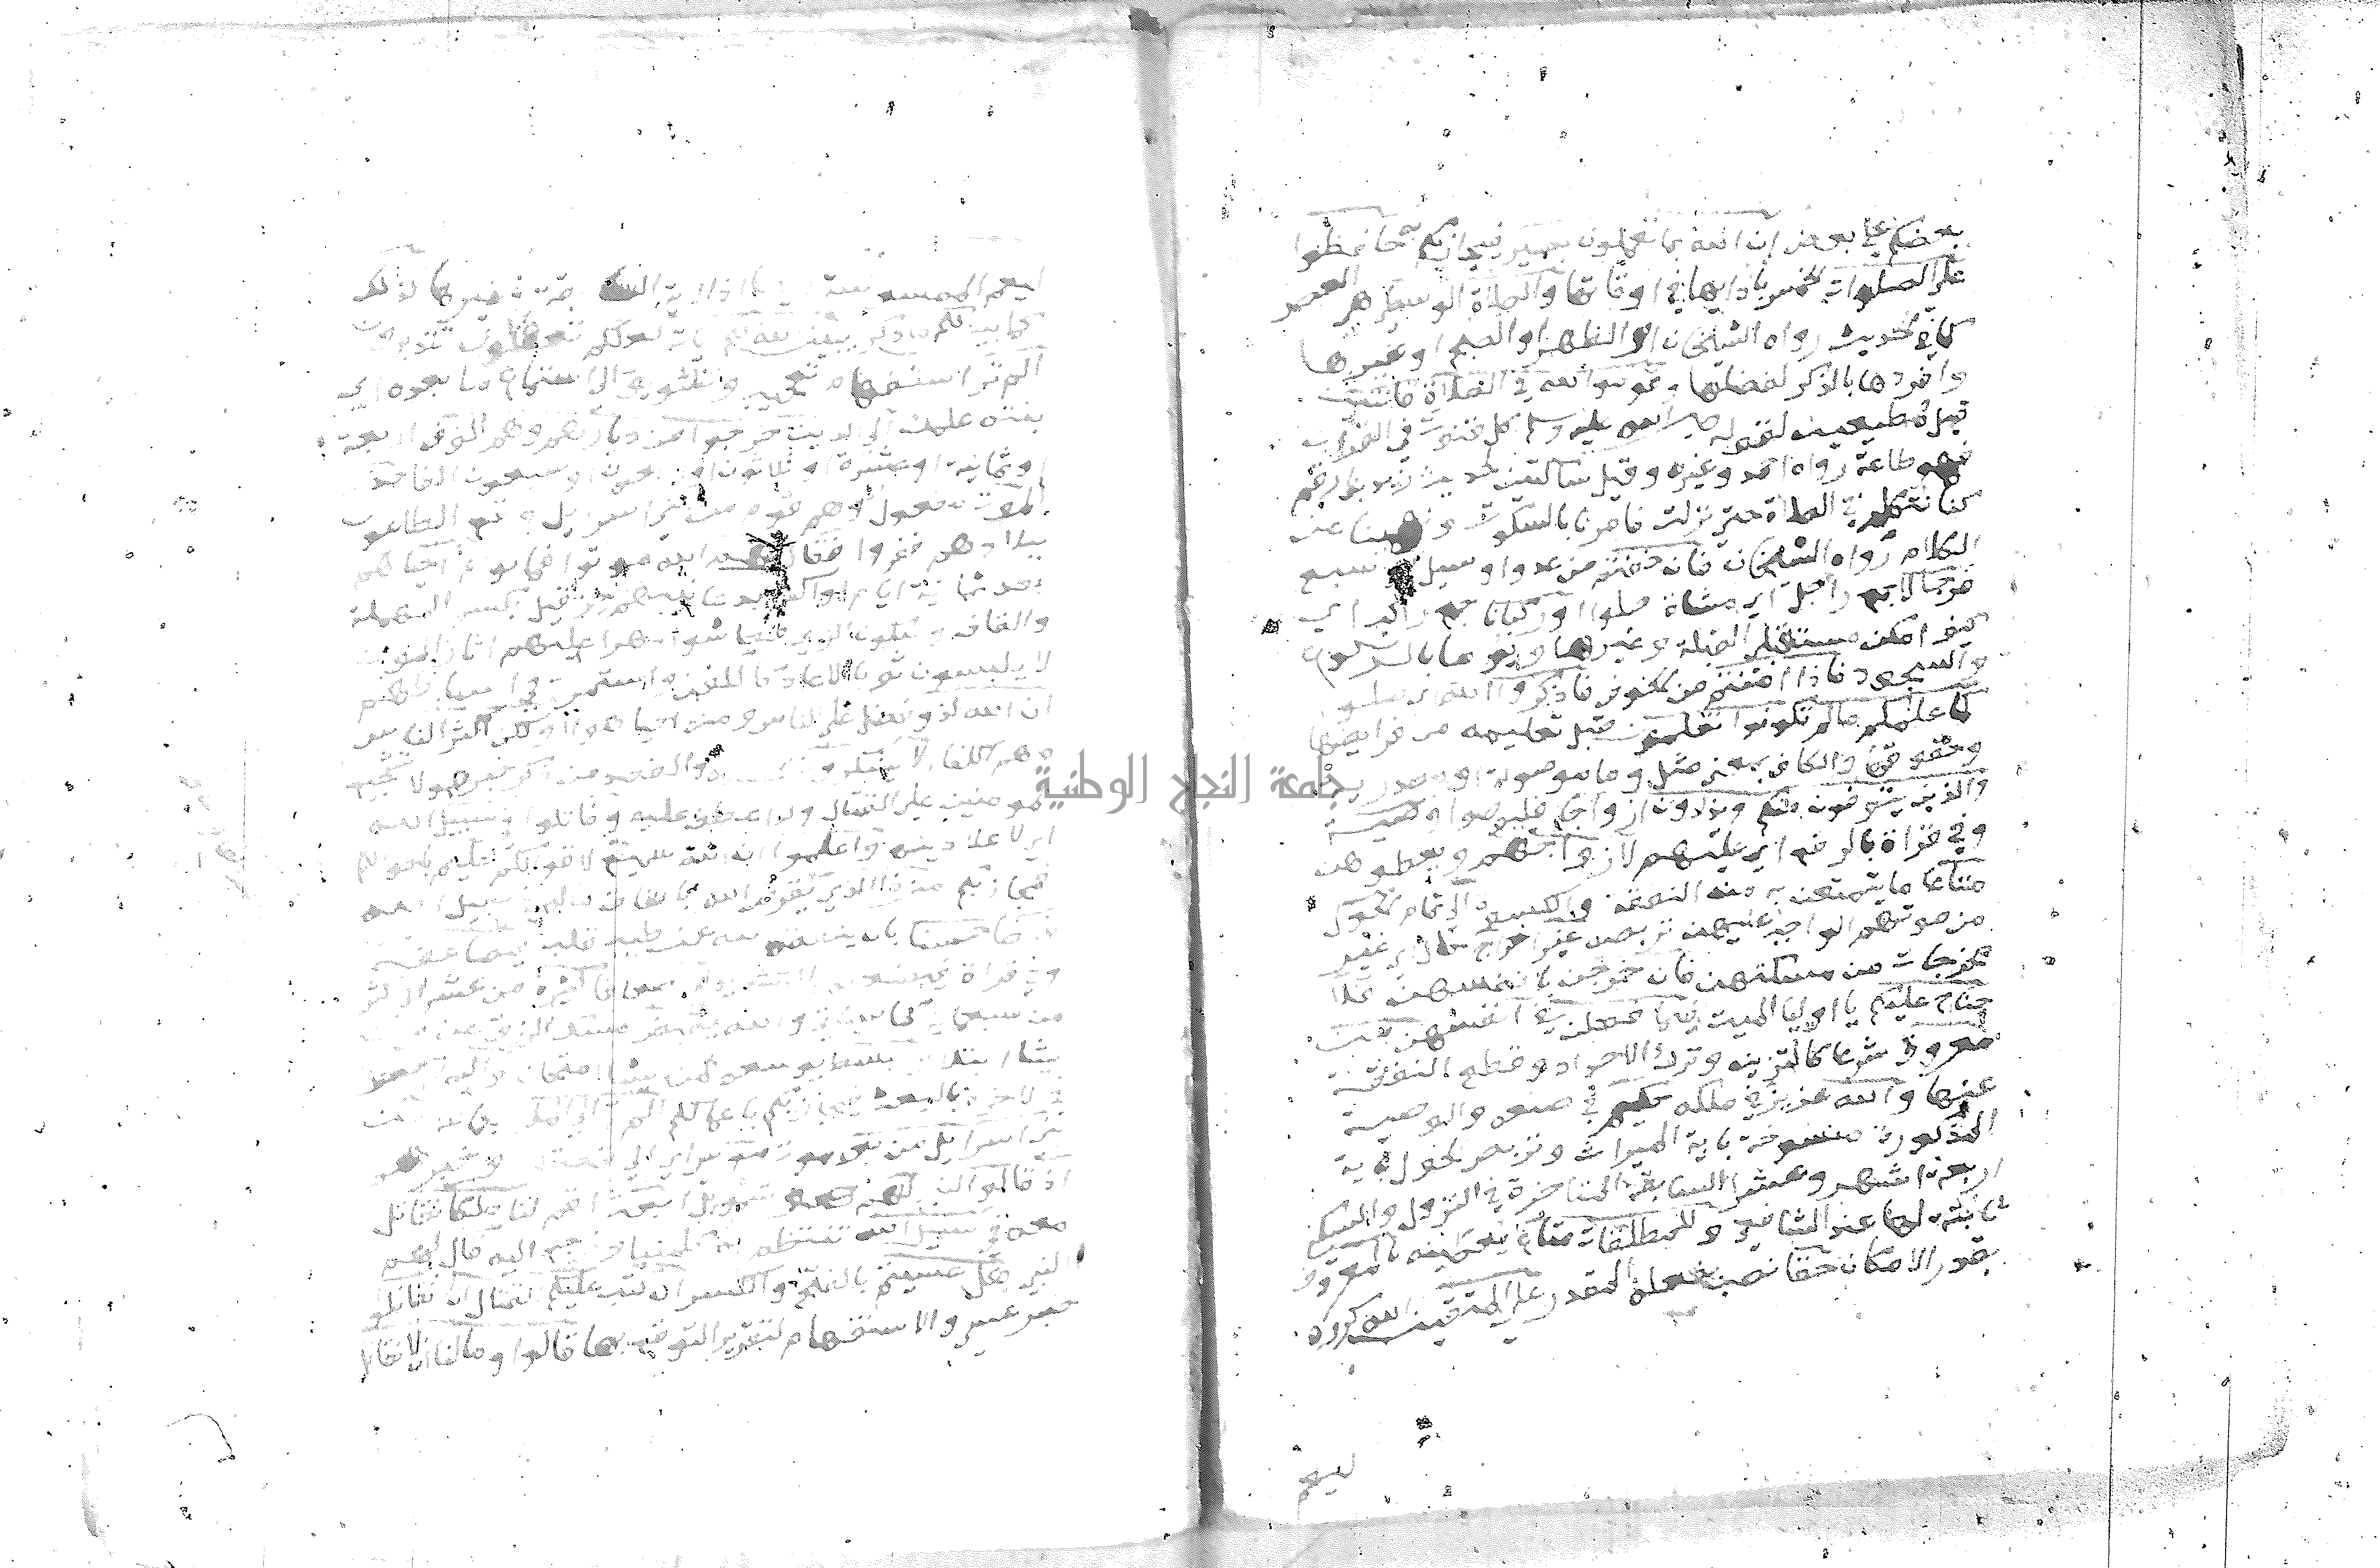 بعضكم علي بعض ان الله بما تعملون بصير فيجازيكم به حافظوا
علي الصلوات الخمس بادايها في اوقاتها والصلاة الوسطي هي العصر
كما في الحديث رواه الشيخان او الظهر او الصبح او غيرها
وافردها بالذكر لفضلها وقوموا لله في الصلاة قانتين
قيل مطيعين لقوله صلي الله عليه وسلم كل قنوت في القران
فهو طاعة رواه احمد وغيره وقيل ساكتين لحديث زيد بن ارقم
كنا نتكلم في الصلاة حتي نزلت فامرنا بالسكوت ونهينا عن
الكلام رواه الشيخان فان خفتم من عدو او سيل او سبع
فرجالا جمع راجل اي مشاة صلوا او ركبانا جمع راكب اي
كيف امكن مستقبلي القبلة وغيرها ويومي بالركوع
والسجود فاذا امنتم من الخوف فاذكروا الله اي صلوا
كما علمكم مالم تكونوا تعلمون قبل تعليمه من فرايضها
وحقوقها والكاف بمعني مثل وما موصولة او مصدرية
والذين يتوفون منكم ويذرون ازواجا فليوصوا وصية
وفي قراة بالرفع اي عليهم لازواجهم ويعطوهن
متاعا ما يتمتعن به من النفقة والكسوة الي تمام الحول
من موتهم الواجب عليهن تربصه غير اخراج حال اي غير
مخرجات من مسكنهن فان خرجن بانفسهن فلا
جناح عليكم يا اوليا الميت فيما فعلن في انفسهن من
معروف شرعا كالتزين وترك الاحداد وقطع النفقة
عنها والله عزيز في ملكه حكيم في صنعه والوصية
المذكورة منسوخة باية الميراث وتربص الحول باية
اربعة اشهر وعشرا السابقة المتاخرة في النزول والسكني
ثابتة لها عند الشافعي وللمطلقات متاع يعطينه بالمعروف
بقدر الامكان حقا نصب بفعله المقدر علي المتقين الله كرره
ليعم
ليعم الممسوسة ايضا اذ الاية السابقة في غيرها كذلك
كما بين لكم ما ذكر يبين الله لكم اياته لعلكم تعقلون تتدبرون
الم تر استفهام تعجيب وتشويق الي استماع ما بعده اي
ينته علمك الي الذين خرجوا من ديارهم وهم الوف اربعة
او ثمانية او عشرة او ثلاثون او اربعون او سبعون الفا حذر
الموت مفعول له وهم قوم من بني اسراييل وقع الطاعون
ببلادهم ففروا فقال لهم الله موتوا فماتوا ثم احياهم
بعد ثمانية ايام او اكثر بدعا نبيهم حزقيل بكسر المهملة
والقاف وسكون الزاي فعاشوا دهرا عليهم اثر الموت
لا يلبسون ثوبا الا عاد كالكفن واستمرت في اسباطهم
ان الله لذو فضل علي الناس ومنه احيا هولا ولكن اكثر الناس
وهم الكفار لا يشكرون والقصد من ذكر خبر هولا تشجيع
المومنين علي القتال ولذا عطف عليه وقاتلوا في سبيل الله
اي لاعلا دينه واعلموا ان الله سميع لاقوالكم عليم باحوالكم
فيجازيكم من ذا الذي يقرض الله بانفاق ماله في سبيل الله
قرضا حسنا بان ينفقه لله عن طيب قلب فيضاعفه
وفي قراة فيضعفه بالتشديد له اضعافا كثيرة من عشر الي اكثر
من سبعماية كما سياتي والله يقبض يمسك الرزق عن من
يشا ابتلا ويبسط يوسعه لمن يشا امتحانا واليه ترجعون
في الاخرة بالبعث فيجازيكم باعمالكم الم تر الي الملا الجماعة من
بني اسراييل من بعد موت موسي اي الي قصتهم وخبرهم
اذ قالوا لنبي لهم هو شمويل ابعث اقم لنا ملكا نقاتل
معه في سبيل الله تنتظم به كلمتنا ونرجع اليه قال لهم
النبي هل عسيتم بالفتح والكسر ان كتب عليكم القتال ان لا تقاتلوا
خبر عسي والاستفهام لتقرير التوقع بها قالوا وما لنا ان لا نقاتل
جامعة النجاح الوطنية